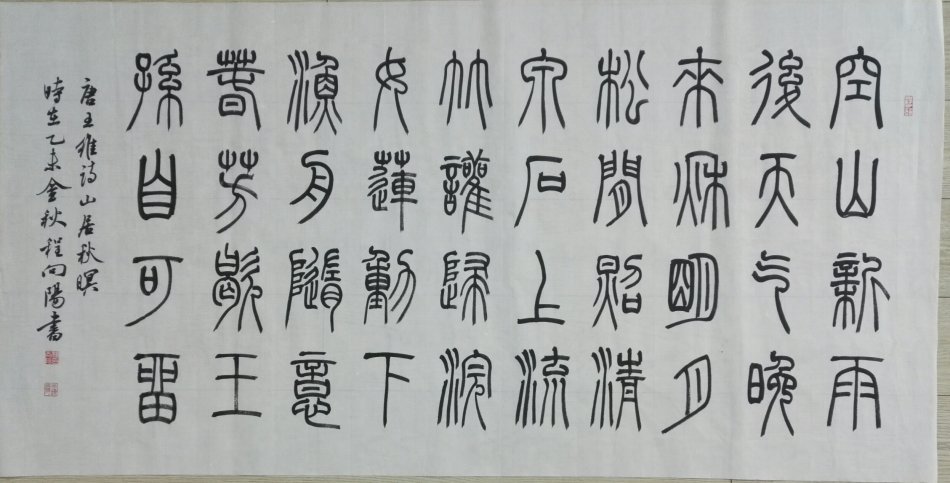 空山新雨
後天气晚
來秌明月
松間照清
泉石上流
竹讙歸浣
女蓮動下
漁舟隨意
萅芳歇王
孫自可留
唐王維詩山居秋暝
時在乙未金秋程向陽書